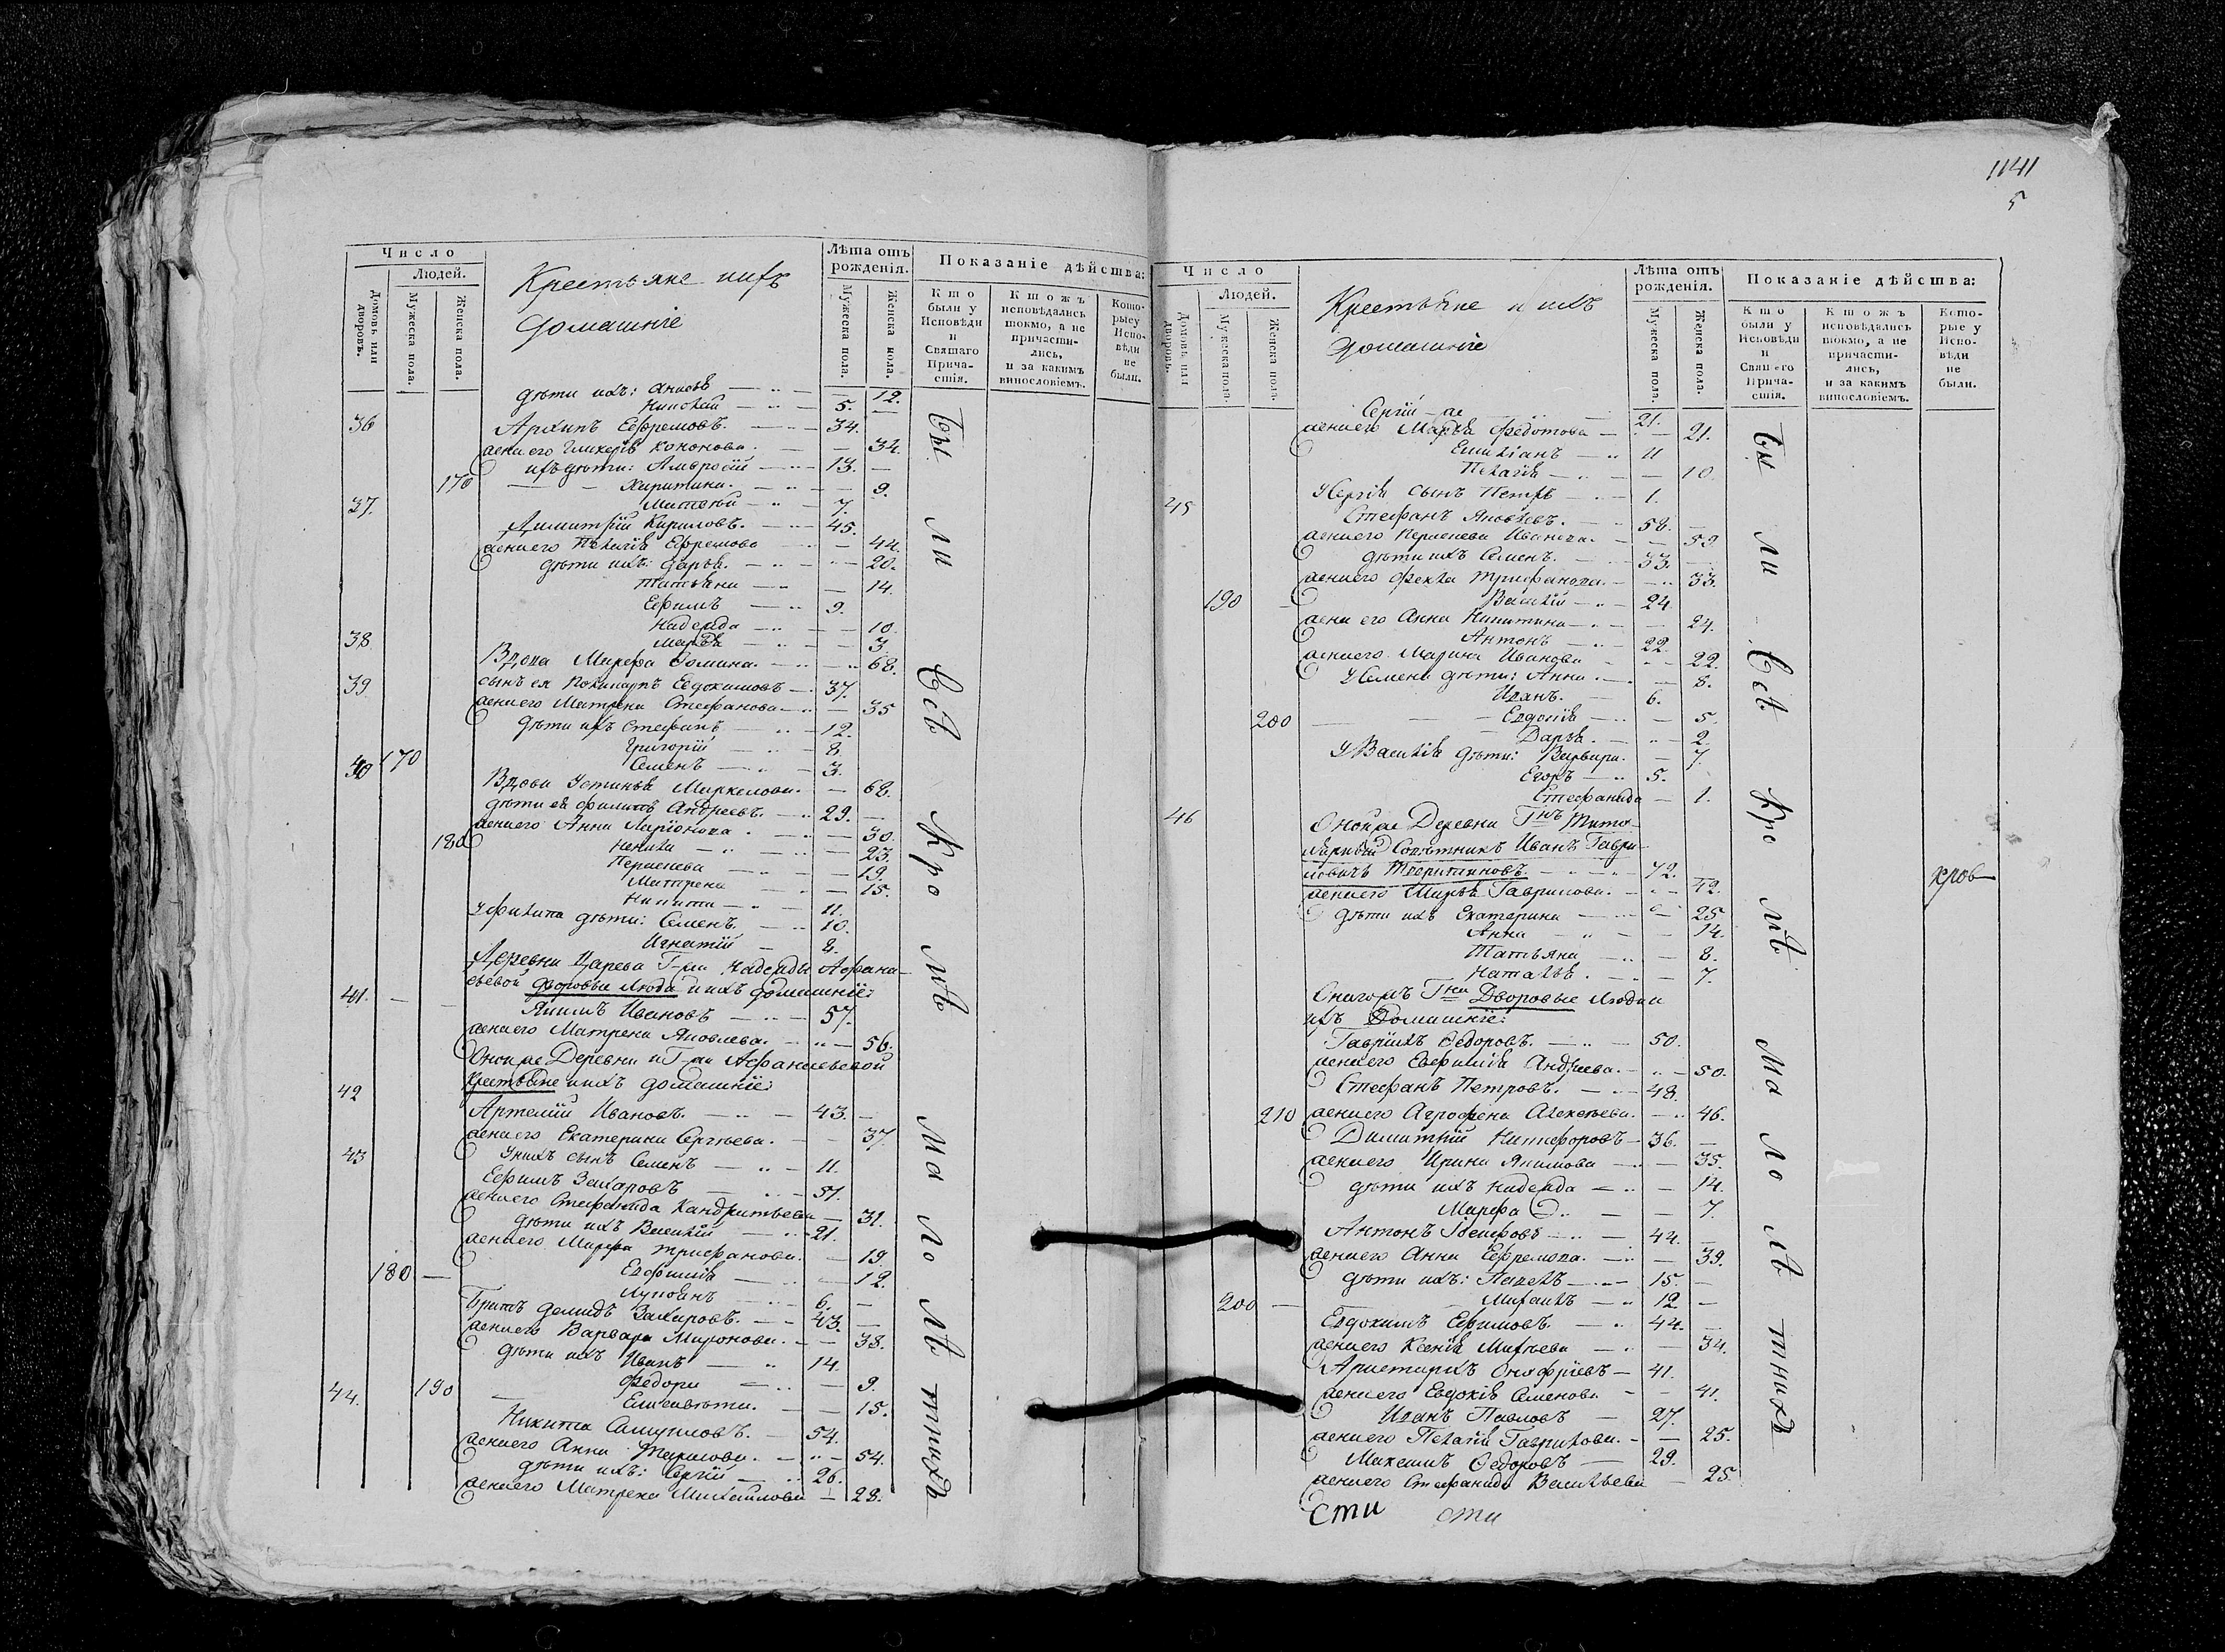 Число
Людей.
Домовъ или дворовъ.
Мужеска пола.
Женска пола.
Крестьяне и ихъ
домашніе
Лѣта отъ рожденія.
Мужеска пола.
Женска пола.
Показаніе дѣйства:
Кто были у Исповѣди и Святаго Причастія.
Ктожъ исповѣдались токмо, а не причастились, и за какимъ винословіемъ.
Которые у Исповѣди не были.
дѣти ихъ: 12.
5.
36 Архипъ Ефремовъ. 34.
жена его Гликерія Кононова. 34.
ихъ дѣти: Амвросій 13.
170 Харитина. 9.
7.
37. Димитрій Кириловъ. 45.
жена его Пелагія Ефремова 44.
дѣти ихъ: Дарья. 20.
Татьяна 14.
Ефимъ 9.
Надежда 10.
Марѳа 3
38 Вдова Марфа Фомина. 68.
39 сынъ ея Поликарпъ Евдокимовъ 37.
жена его Матрена Стефанова 35
дѣти ихъ Стефанъ 12.
Григорій 8
170 Семенъ 3.
40 Вдова Устинья Маркелова. 68.
дѣти ея Филипъ Андреевъ. 29.
жена его Анна Ларіонова. 30.
180 23.
19.
Матрена 15.
Никита 11.
У Филипа дѣти: Семенъ. 10.
Игнатій 8.
Деревни Царева Г-жи Надежды Афана-
сьевой дворовые люди и ихъ домашніе:
41. Якимъ Ивановъ 57.
жена его Матрена Яковлева. 56.
Оной же Деревни и Г-жи Афанасьевой
Крестьяне и ихъ домашніе:
42 Артемій Ивановъ. 43.
жена его Екатерина Сергѣева. 37.
У нихъ сынъ Семенъ 11.
43 Ефимъ Захаровъ 51.
жена его Стефанида Кандратьева 31.
дѣти ихъ Василій 21.
жена его Марфа Трифанова. 19
180 Евфимія 12.
6.
Братъ Демидъ Захаровъ. 43.
жена его Варвара Миронова. 38.
дѣти ихъ Иванъ 14.
190 Федора 9.
Елисавета. 15.
44. Никита Самуиловъ. 54.
жена его Анна 54.
дѣти ихъ: Сергій 26.
жена его Матрена Михайлова 28.
Бы ли Всѣ Кро мѣ Ма ло лѣ тнихъ
1141
5
Число
Людей.
Домовъ или дворовъ.
Мужеска пола.
Женска пола.
Крестьяне и ихъ
домашніе
Лѣта отъ рожденія.
Мужеска пола.
Женска пола.
Показаніе дѣйства:
Кто были у Исповѣди и Святаго Причастія.
Ктожъ исповѣдались токмо, а не причастились, и за какимъ винословіемъ.
Которые у Исповѣди не были.
Сергій 21.
жена его Марѳа Федотова 21.
Емиліанъ 11
Пелагія 10.
У Сергія сынъ Петръ 1.
45 Стефанъ Яковлевъ. 58.
жена его Иванова. 59
дѣти ихъ Семенъ. 33.
жена его Фекла Трифанова. 33.
190 Василій 24
жена его Анна Никитина 24.
Антонъ 22.
жена его Марина Иванова 22.
У Семена дѣти: Анна. 8.
Иванъ. 6.
200 Евдокія 5.
Дарья. 2.
У Василія дѣти: Варвара. 7.
Егоръ 5.
Стефанида 1.
46 Оной же Деревни Г-нъ Титу-
лярный Совѣтникъ Иванъ Гаври-
ловичъ 72.
жена его Марья Гаврилова. 42.
дѣти ихъ Екатерина 25
Анна 14.
Татьяна 8.
Наталья. 7.
Онагожъ Г-на Дворовые Люди и
ихъ Домашніе:
Гавріилъ Ѳедоровъ. 50.
жена его Евфимія Андреева. 50.
Стефанъ Петровъ. 48.
210 жена его Агрофена Алексѣева. 46.
Димитрій Никифоровъ 36.
жена его Ирина Якимова 35.
дѣти ихъ Надежда 14.
Марфа 7.
Антонъ 44.
жена его Анна Ефремова. 39.
дѣти ихъ: Павелъ 15.
200 Михаилъ 12
Евдокимъ Ефимовъ. 44.
жена его Ксенія 34.
Аристархъ Онофріевъ 41.
жена его Евдокія Семенова 41.
Иванъ Павловъ 27.
жена его Пелагія Гаврилова. 25.
Максимъ Ѳедоровъ 29.
жена его Стефанида Васильева 25.
Сти сти
Бы ли Всѣ Кро мѣ Ма ло лѣ тнихъ